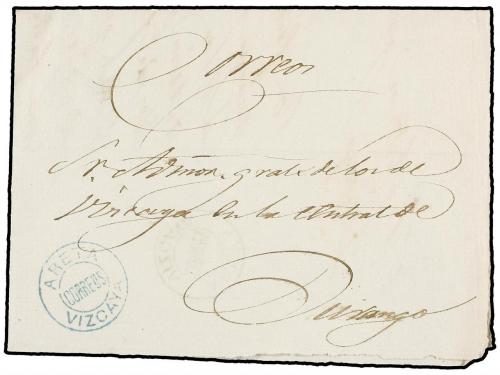 Correos
Sr. Admon. gral. de los de
Vizcaya en la central de
Durango
ARETA
CORREOS
VIZCAYA